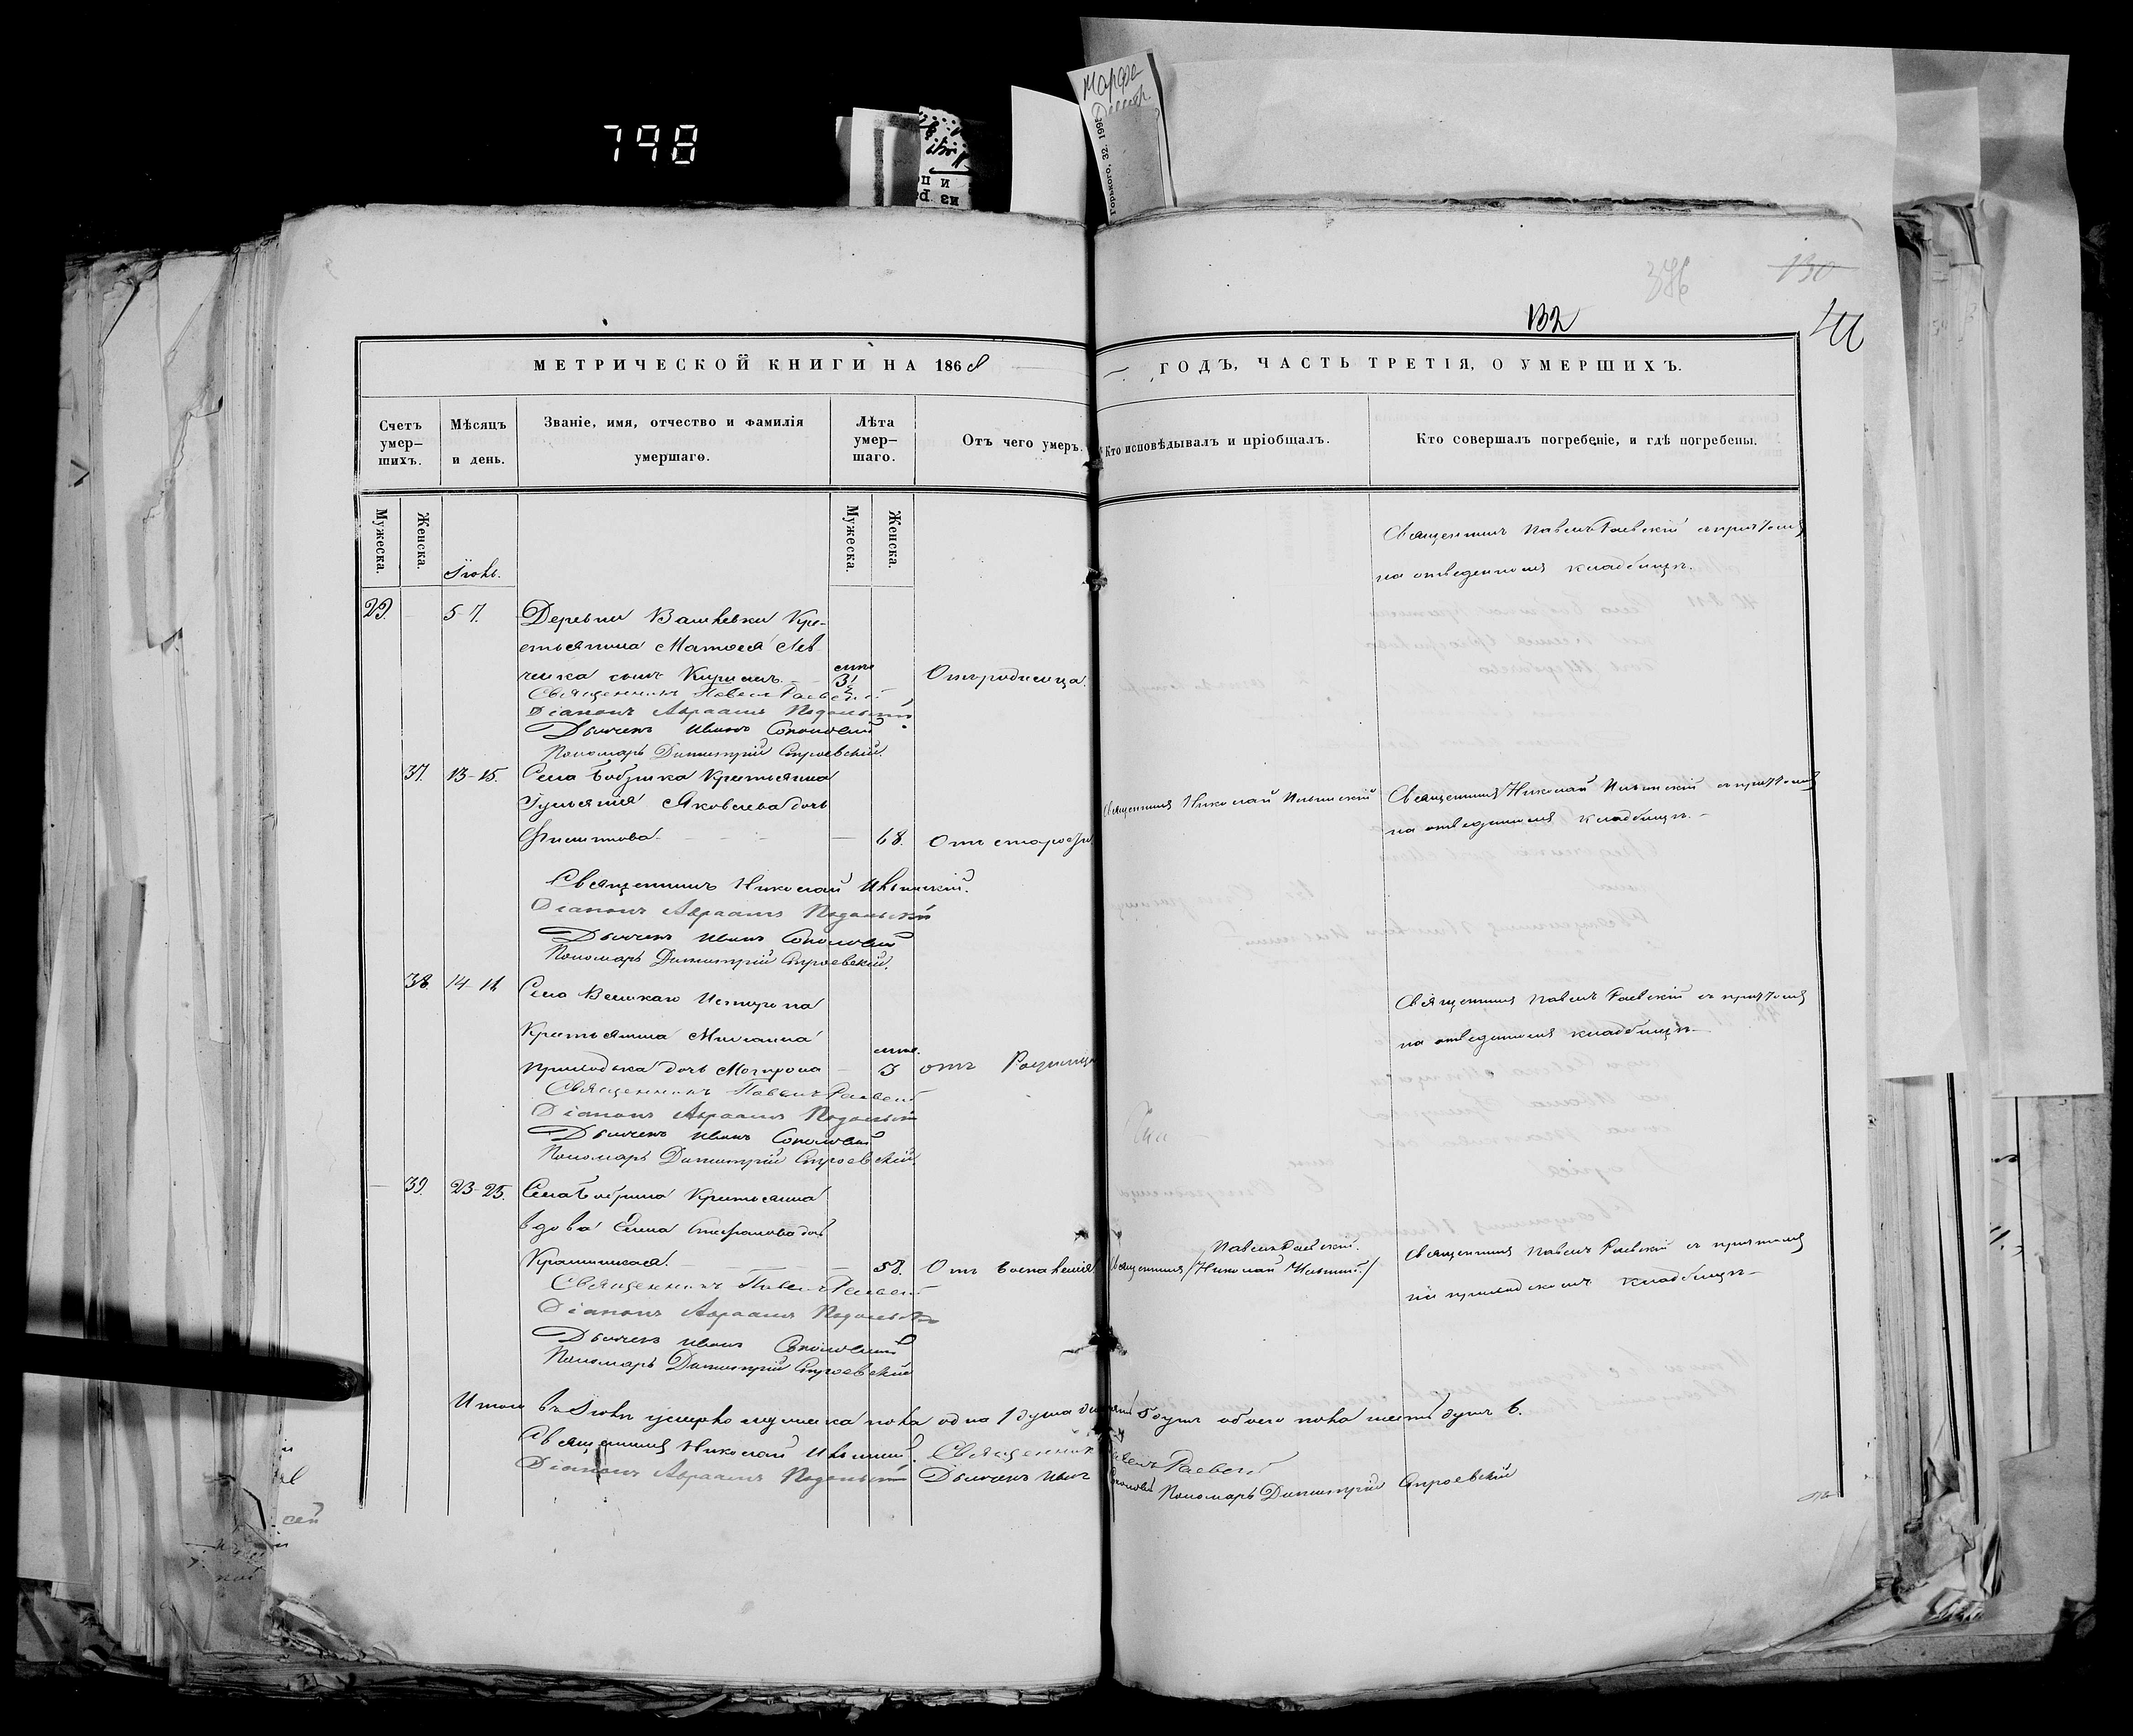 798
Марфа
Горького, 32. 199
130
132
МЕТРИЧЕСКОЙ КНИГИ НА 1868
ГОДЪ, ЧАСТЬ ТРЕТІЯ, О УМЕРШИХЪ.
Счетъ умер-шихъ.
Мѣсяцъ и день.
Званіе, имя, отчество и фамилія умершаго.
Лѣта умер-шаго.
Отъ чего умеръ.
Кто исповѣдывалъ и пріобщалъ.
Кто совершалъ погребеніе, и гдѣ погребены.
Мужеска.
Женска.
Мужеска.
Женска.
Іюль.
Священникъ Павелъ Раевскій съ причтомъ
на отведенномъ кладбищѣ.
29. 5-7. Деревни Кре-
стьянина Матвея Лев
сынъ 3½ Отъ родимца.
Священникъ Павелъ Раевскій
Діаконъ Авраамъ Подольскій
Дьячекъ Иванъ Соколовскій
Пономарь Димитрій Строевскій.
37. 13-15. Села Бобрика Крестьянка
Іуліанія Яковлева дочь
Филипова 68. Отъ старости
Священникъ Николай Ильинскій
Священникъ Николай Ильинскій съ причтомъ
на отведенномъ кладбищѣ.
Священникъ Николай Ильинскій.
Діаконъ Авраамъ Подольскій
Дьячекъ Иванъ Соколовскій
Пономарь Димитрій Строевскій.
38. 14-16 Села Великаго Исторопа
Крестьянина Михаила
Приходька дочь Матрона 3 отъ Родимца
Священникъ Павелъ Раевскій съ причтомъ
на отведенномъ кладбищѣ
Священникъ Павелъ Раевскій
Діаконъ Авраамъ Подольскій
Дьячекъ Иванъ Соколовскій
Пономарь Димитрій Строевскій.
39. 23-25. Села Бобрика Крестьянка
вдова Елена Стефанова дочь
58. Отъ воспаленія
Павелъ Раевскій.
Священникъ /Николай Ильинскій./
Священникъ Павелъ Раевскій съ причтомъ
на приходскомъ кладбищѣ
Священникъ Павелъ Раевскій
Діаконъ Авраамъ Подольскій
Дьячекъ Иванъ Соколовскій
Пономарь Димитрій Строевскій
Итого въ Іюлѣ умерло мужеска пола одна 1 душа 5 душъ обоего пола шесть душъ 6.
Священникъ Николай Ильинскій. Священникъ Павелъ Раевскій
Діаконъ Авраамъ Подольскій Дьячекъ Иванъ Соколовскій Пономарь Димитрій Строевскій